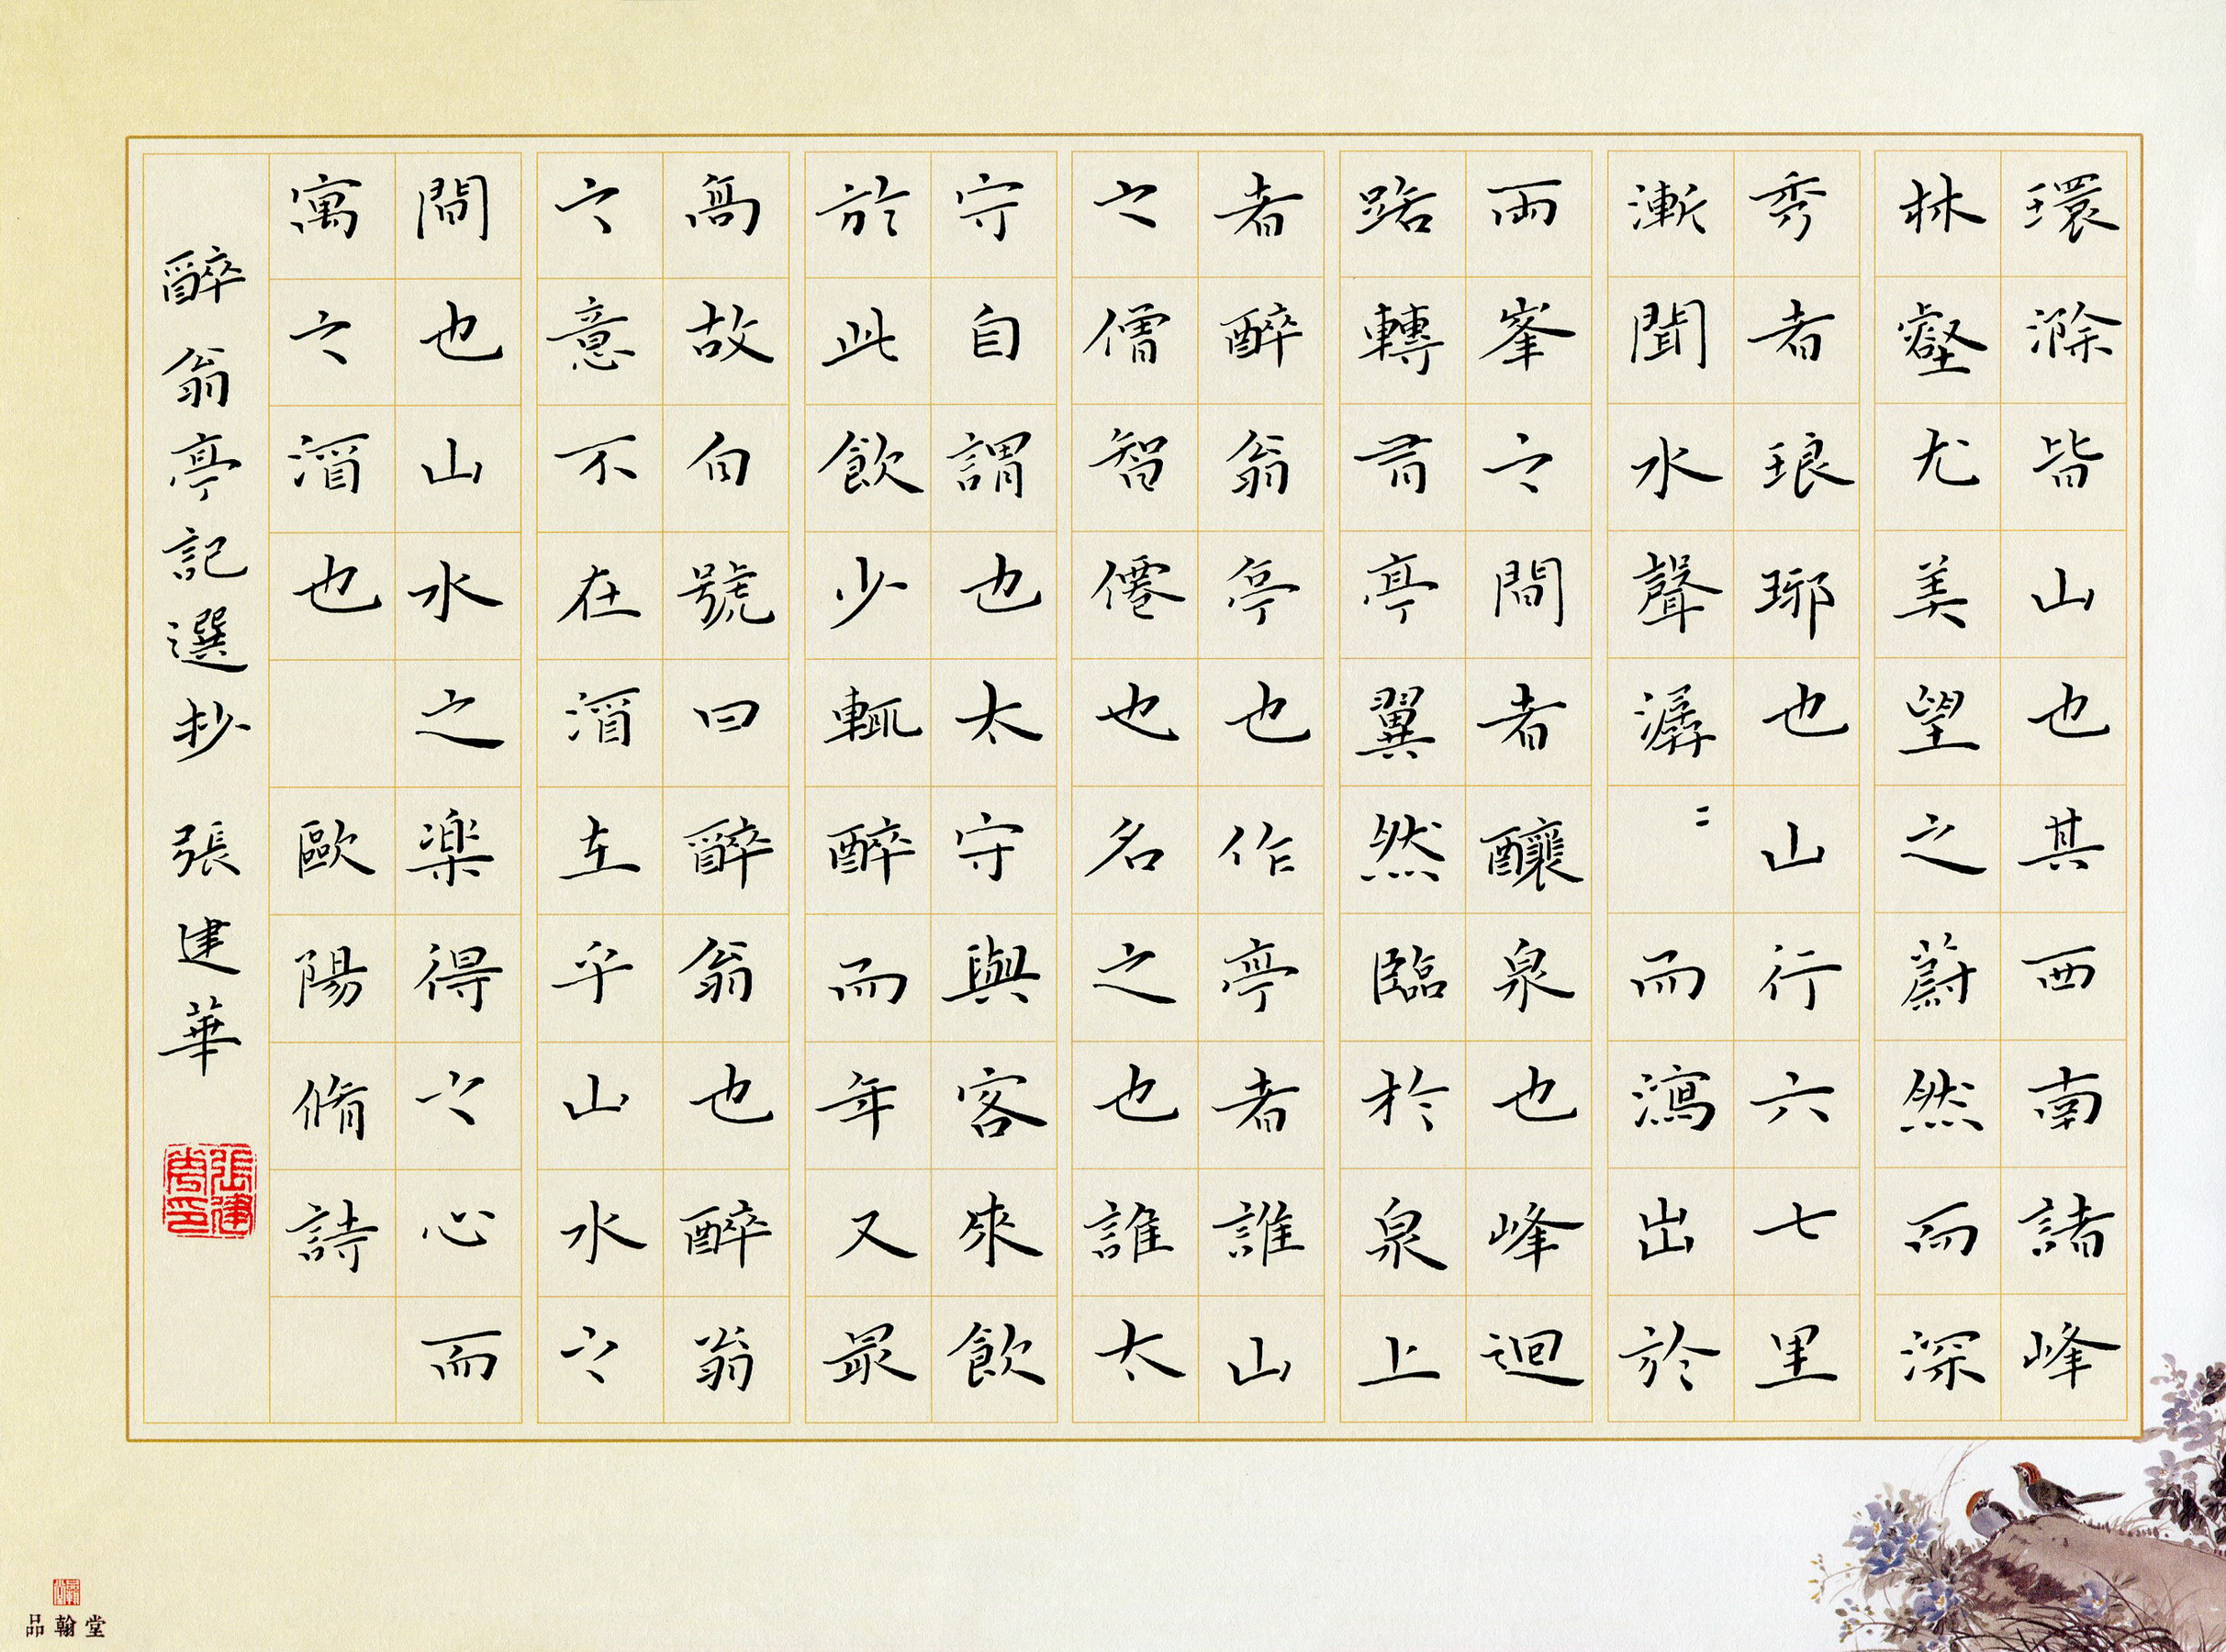 環滁皆山也其西南諸峰
林壑尤美望之蔚然而深
秀者琅琊也山行六七里
漸聞水聲潺〻而瀉出於
兩峯之間者釀泉也峰迴
路轉有亭翼然臨於泉上
者醉翁亭也作亭者誰山
之僧智僊也名之也誰太
守自謂也太守與客來飲
於此飲少輒醉而年又最
高故自號曰醉翁也醉翁
之意不在酒在乎山水之
間也山水之楽得之心而
寓之酒也 歐陽脩詩
醉翁亭記選抄 張建華
張建華印
品翰堂